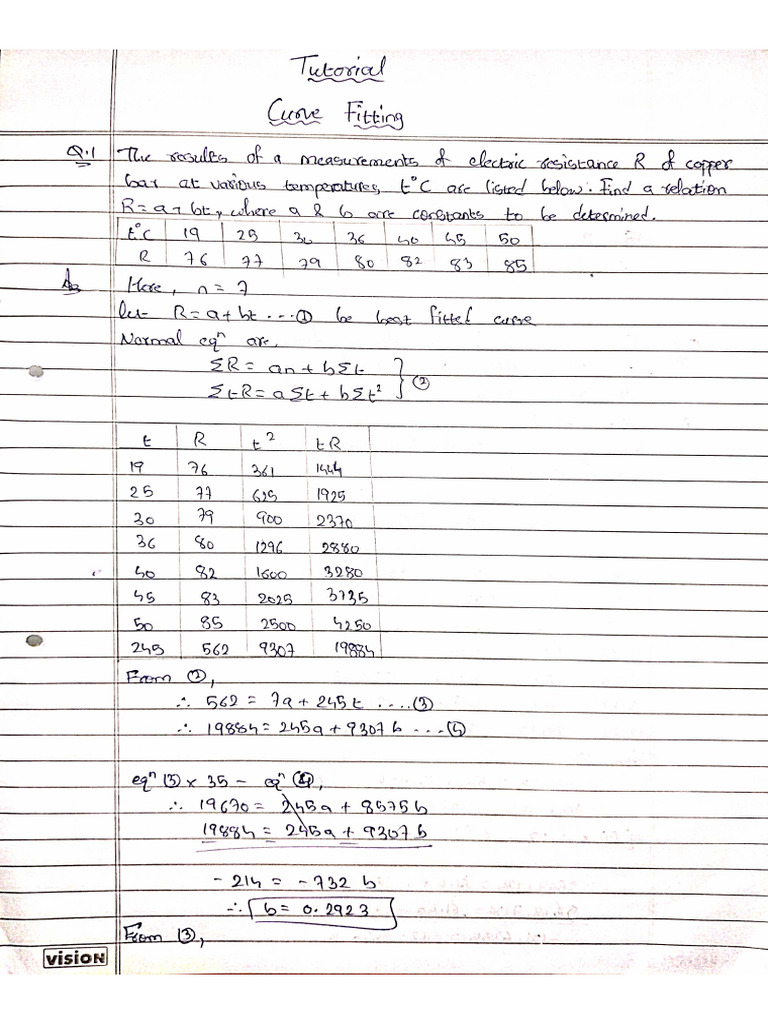 Tutorial
Curve Fitting
Q.1 The results of a measurements of electric resistance R of copper
bar at various temperatures t°C are listed below. Find a relation
R=a+bt, where a & b are constants to be determined.
t°C 19 25 30 36 40 45 50
R 76 77 79 80 82 83 85
Ans Here, n = 7
let R=a+bt ...① be best fitted curve
Normal eqⁿ are,
ΣR = an + bΣt
ΣtR = aΣt + bΣt² } ②
t R t² tR
19 76 361 1444
25 77 625 1925
30 79 900 2370
36 80 1296 2880
40 82 1600 3280
45 83 2025 3735
50 85 2500 4250
245 562 9307 19884
From ②,
∴ 562 = 7a + 245t ....③
∴ 19884 = 245a + 9307b ...④
eqⁿ ③ × 35 - eqⁿ ④,
∴ 19670 = 245a + 8575b
19884 = 245a + 9307b
- - -
-214 = -732 b
∴ b = 0.2923
From ③,
vision